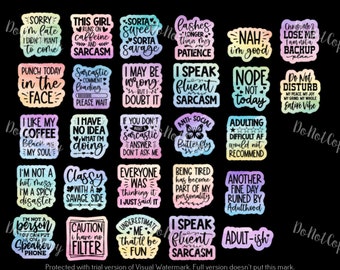 SORRY
I'm late
I DIDN'T WANT
to come
THIS GIRL
RUNS ON
CAFFEINE
AND
SARCASM
SORTA
Sweet
SORTA
Savage
lashes
LONGER
THAN MY
PATIENCE
NAH
i'm good
LOSE ME
I AM NOT A
BACKUP
plan
PUNCH TODAY
IN THE
FACE
Sarcastic
COMMENT
Loading
PLEASE WAIT
I MAY BE
WRONG
BUT I
DOUBT IT
I SPEAK
fluent
SARCASM
NOPE
NOT
Today
DO NOT
DISTURB
I LIKE MY
COFFEE
Black
MY SOUL
I HAVE
NO IDEA
WHAT I'M
DOING
IF YOU DON'T
WANT A
SARCASTIC
ANSWER
DON'T ASK ME
ANTI-SOCIAL
Butterfly
ADULTING
DIFFICULT AF
WOULD NOT
RECOMMEND
I'M NOT A
HOT MESS
I'M A SPICY
DISASTER
Classy
WITH A
SAVAGE SIDE
EVERYONE
WAS
THINKING IT
I JUST SAID IT
BEING TIRED
HAS BECOME
PART OF MY
PERSONALITY
ANOTHER
FINE DAY
RUINED BY
ADULTHOOD
I'M NOT A
person
YOU CAN PUT
ON
SPEAKER
PHONE
CAUTION
I HAVE NO
FILTER
UNDERESTIMATE
ME
THAT'LL BE
FUN
I SPEAK
fluent
SARCASM
ADULT-ish
Do Not Copy
Protected with trial version of Visual Watermark. Full version doesn't put this mark.